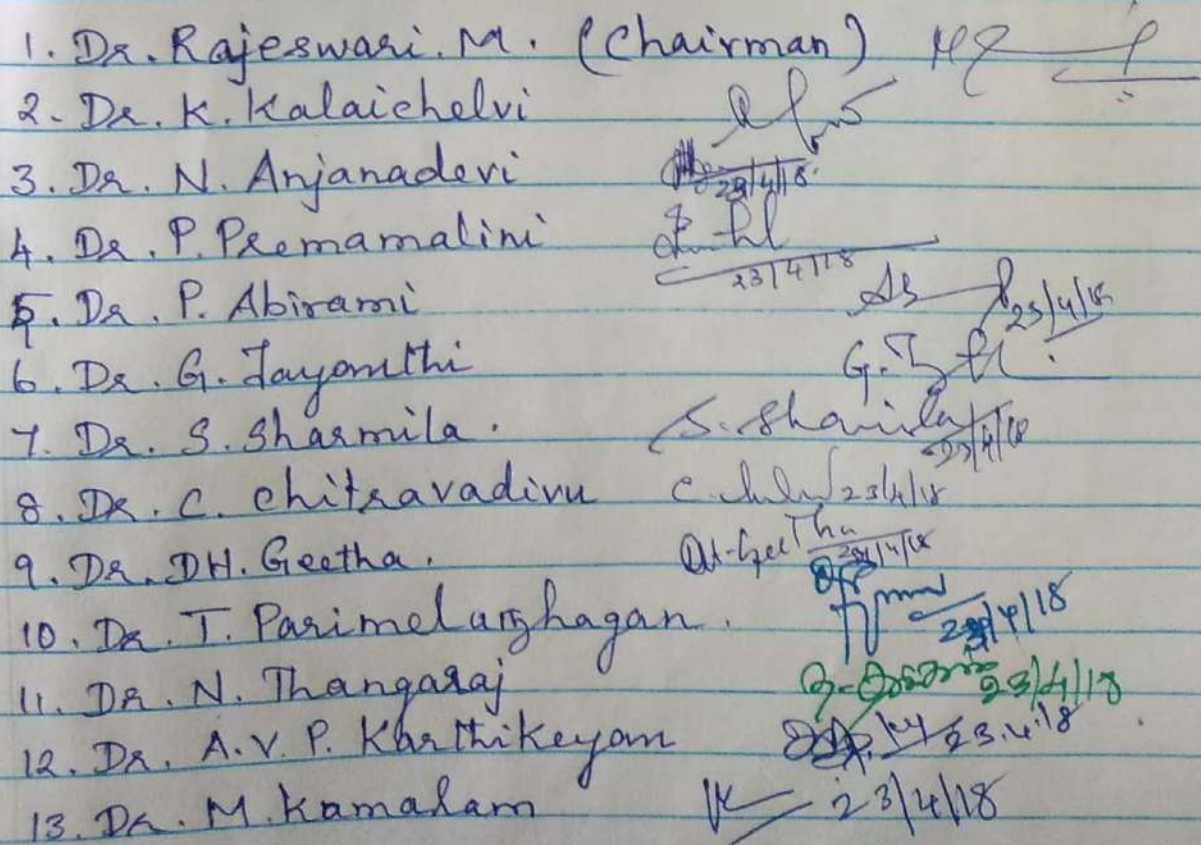 1. Dr. Rajeswari. M. (Chairman)
2. Dr. K. Kalaichelvi
3. Dr. N. Anjanadevi 23/4/18
4. Dr. P. Premamalini 23/4/18
5. Dr. P. Abirami 23/4/18
6. Dr. G. Jayanthi
7. Dr. S. Sharmila. S. Sharmila 23/4/18
8. Dr. C. Chitravadivu 23/4/18
9. Dr. DH. Geetha. DH-Geetha 23/4/18
10. Dr. T. Parimelazhagan. 23/4/18
11. Dr. N. Thangaraj 23/4/18
12. Dr. A. V. P. Karthikeyan 23.4.18
13. Dr. M. Kamalam 23/4/18